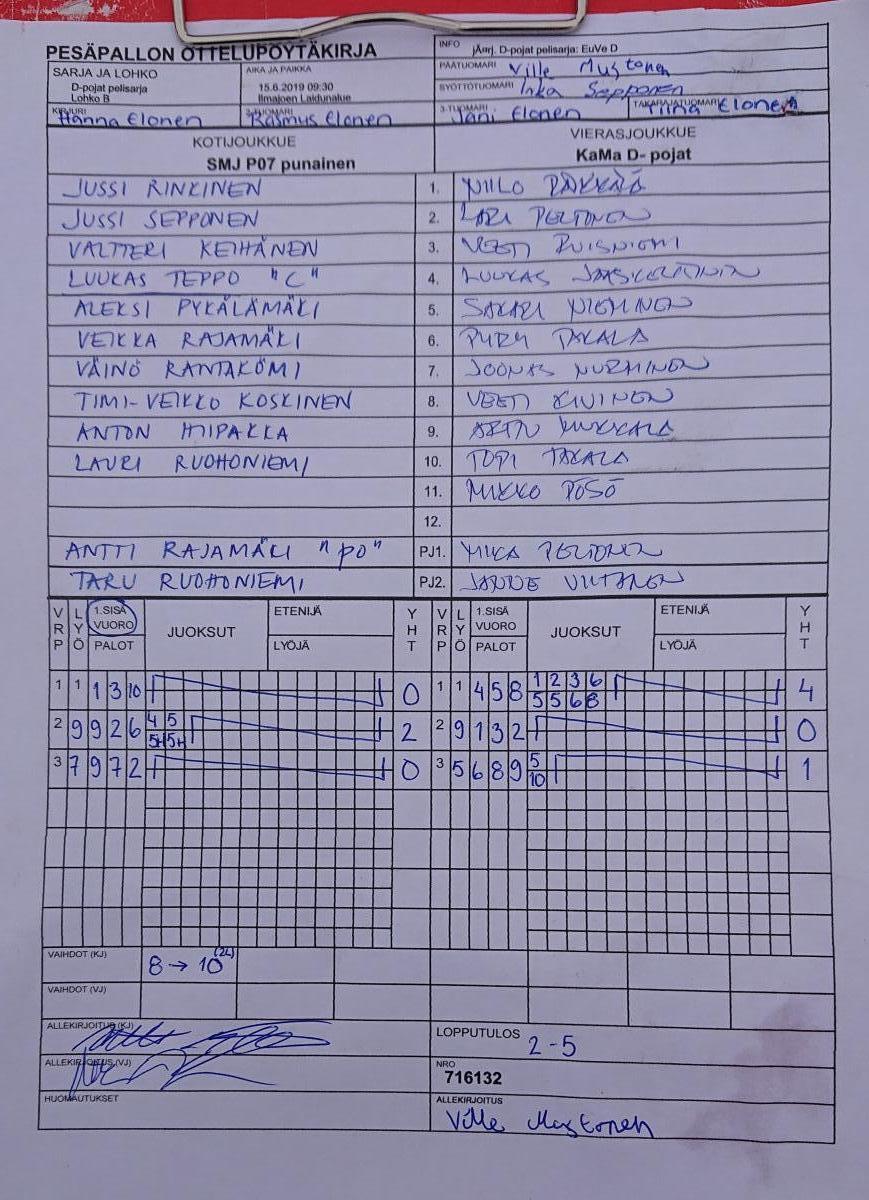 PESÄPALLON OTTELUPÖYTÄKIRJA
INFO jÄrrj. D-pojat pelisarja: EuVe D
SARJA JA LOHKO D-pojat pelisarja Lohko B
AIKA JA PAIKKA 15.6.2019 09:30 Ilmajoen Laidunalue
PÄÄTUOMARI Ville Mustonen
SYÖTTÖTUOMARI Inka Sepponen
KIRJURI Hanna Elonen
2-TUOMARI Rasmus Elonen
3-TUOMARI Jani Elonen
TAKARAJATUOMARI Tiina Elonen
KOTIJOUKKUE SMJ P07 punainen
VIERASJOUKKUE KaMa D- pojat
JUSSI RINKINEN 1. NIILO PÄKKÄLÄ
JUSSI SEPPONEN 2. LARI PELTONEN
VALTTERI KEIHÄNEN 3. VEETI PUISNIEMI
LUUKAS TEPPO "C" 4. LUUKAS
ALEKSI PYKÄLÄMÄKI 5. SAKARI NIEMINEN
VEIKKA RAJAMÄKI 6. TAKALA
VÄINÖ RANTAKÖMI 7. JOONAS NURMINEN
TIMI-VEIKKO KOSKINEN 8. VEETI KIVINEN
ANTON HIIPAKKA 9.
LAURI RUOHONIEMI 10. TOPI TAKALA
11. MIKKO PÖSÖ
12.
ANTTI RAJAMÄKI "po" PJ1. MIKA PELTONEN
TARU RUOHONIEMI PJ2. JANNE VIITANEN
VRP LYÖ 1.SISÄ VUORO PALOT JUOKSUT ETENIJÄ LYÖJÄ YHT VRP LYÖ 1.SISÄ VUORO PALOT JUOKSUT ETENIJÄ LYÖJÄ YHT
1 1 1 3 10 0 1 1 4 5 8 1 2 3 6 4
5 5 6 8
2 9 9 2 6 4 5 2 2 9 1 3 2 0
5H 5H
3 7 9 7 2 0 3 5 6 8 9 5 1
10
VAIHDOT (KJ) 8 → 10 (2L)
VAIHDOT (VJ)
ALLEKIRJOITUS (KJ)
LOPPUTULOS 2-5
ALLEKIRJOITUS (VJ)
NRO 716132
HUOMAUTUKSET
ALLEKIRJOITUS Ville Mustonen